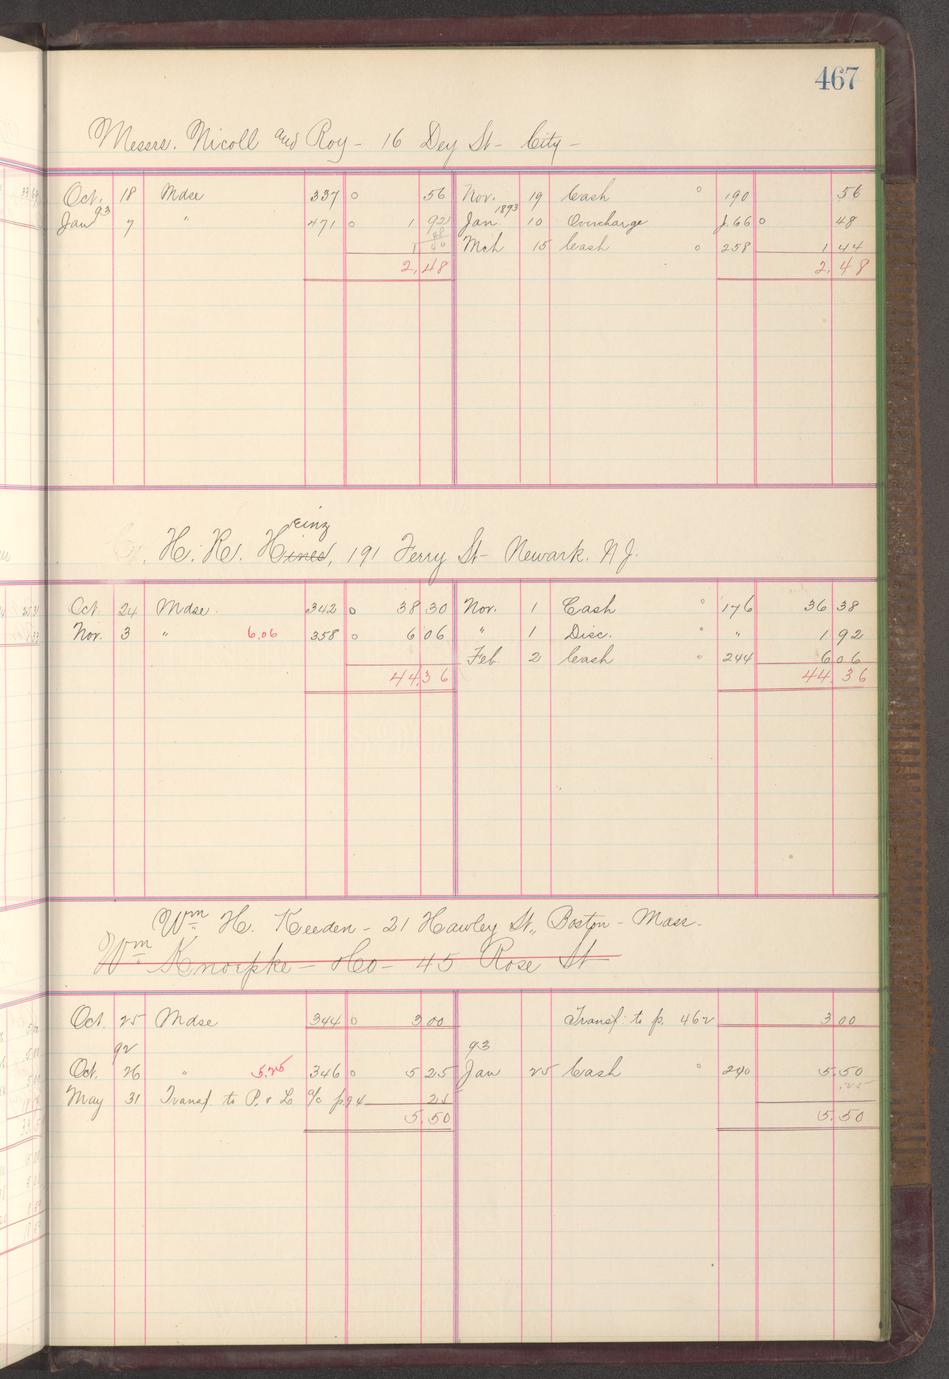 467
Messrs. Nicoll and Roy - 16 Dey St - City -
Oct. 18 Mdse 337 0 56 Nov. 19 Cash 0 190 56
93 1893
Jan 7 " 471 0 1 92 Jan 10 Overcharge J. 66 0 48
48
1 Mch 15 Cash 0 258 1 44
2,48 2,48
einz
H. H. Hines, 191 Ferry St - Newark. N.J.
Oct. 24 Mdse. 342 0 38 30 Nov. 1 Cash 0 176 36 38
Nov. 3 " 6.06 358 0 6 06 " 1 Disc. " " 1 92
Feb 2 Cash 0 244 6 06
44.36 44 36
Wm H. Keeden - 21 Hawley St., Boston - Mass.
Wm Knoepke - Ho - 45 Rose St
Oct. 25 Mdse 344 0 3 00 Transf. to p. 462 3 00
92 93
Oct. 26 " 5.25 346 0 5 25 Jan 25 Cash 0 240 5.50
May 31 Transf to P. & L % p94 25 .25
5.50 5.50